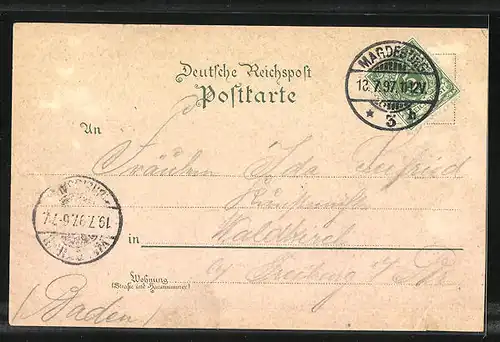 Deutsche Reichspost
Postkarte
MAGDEBURG
13.7.97. 11-12V.
* 3 b
An
Fräulein Ida
Waldkirch
in
by Freiburg i/Br.
19.7.97. 6-7
Wohnung
(Straße und Hausnummer)
(Baden)